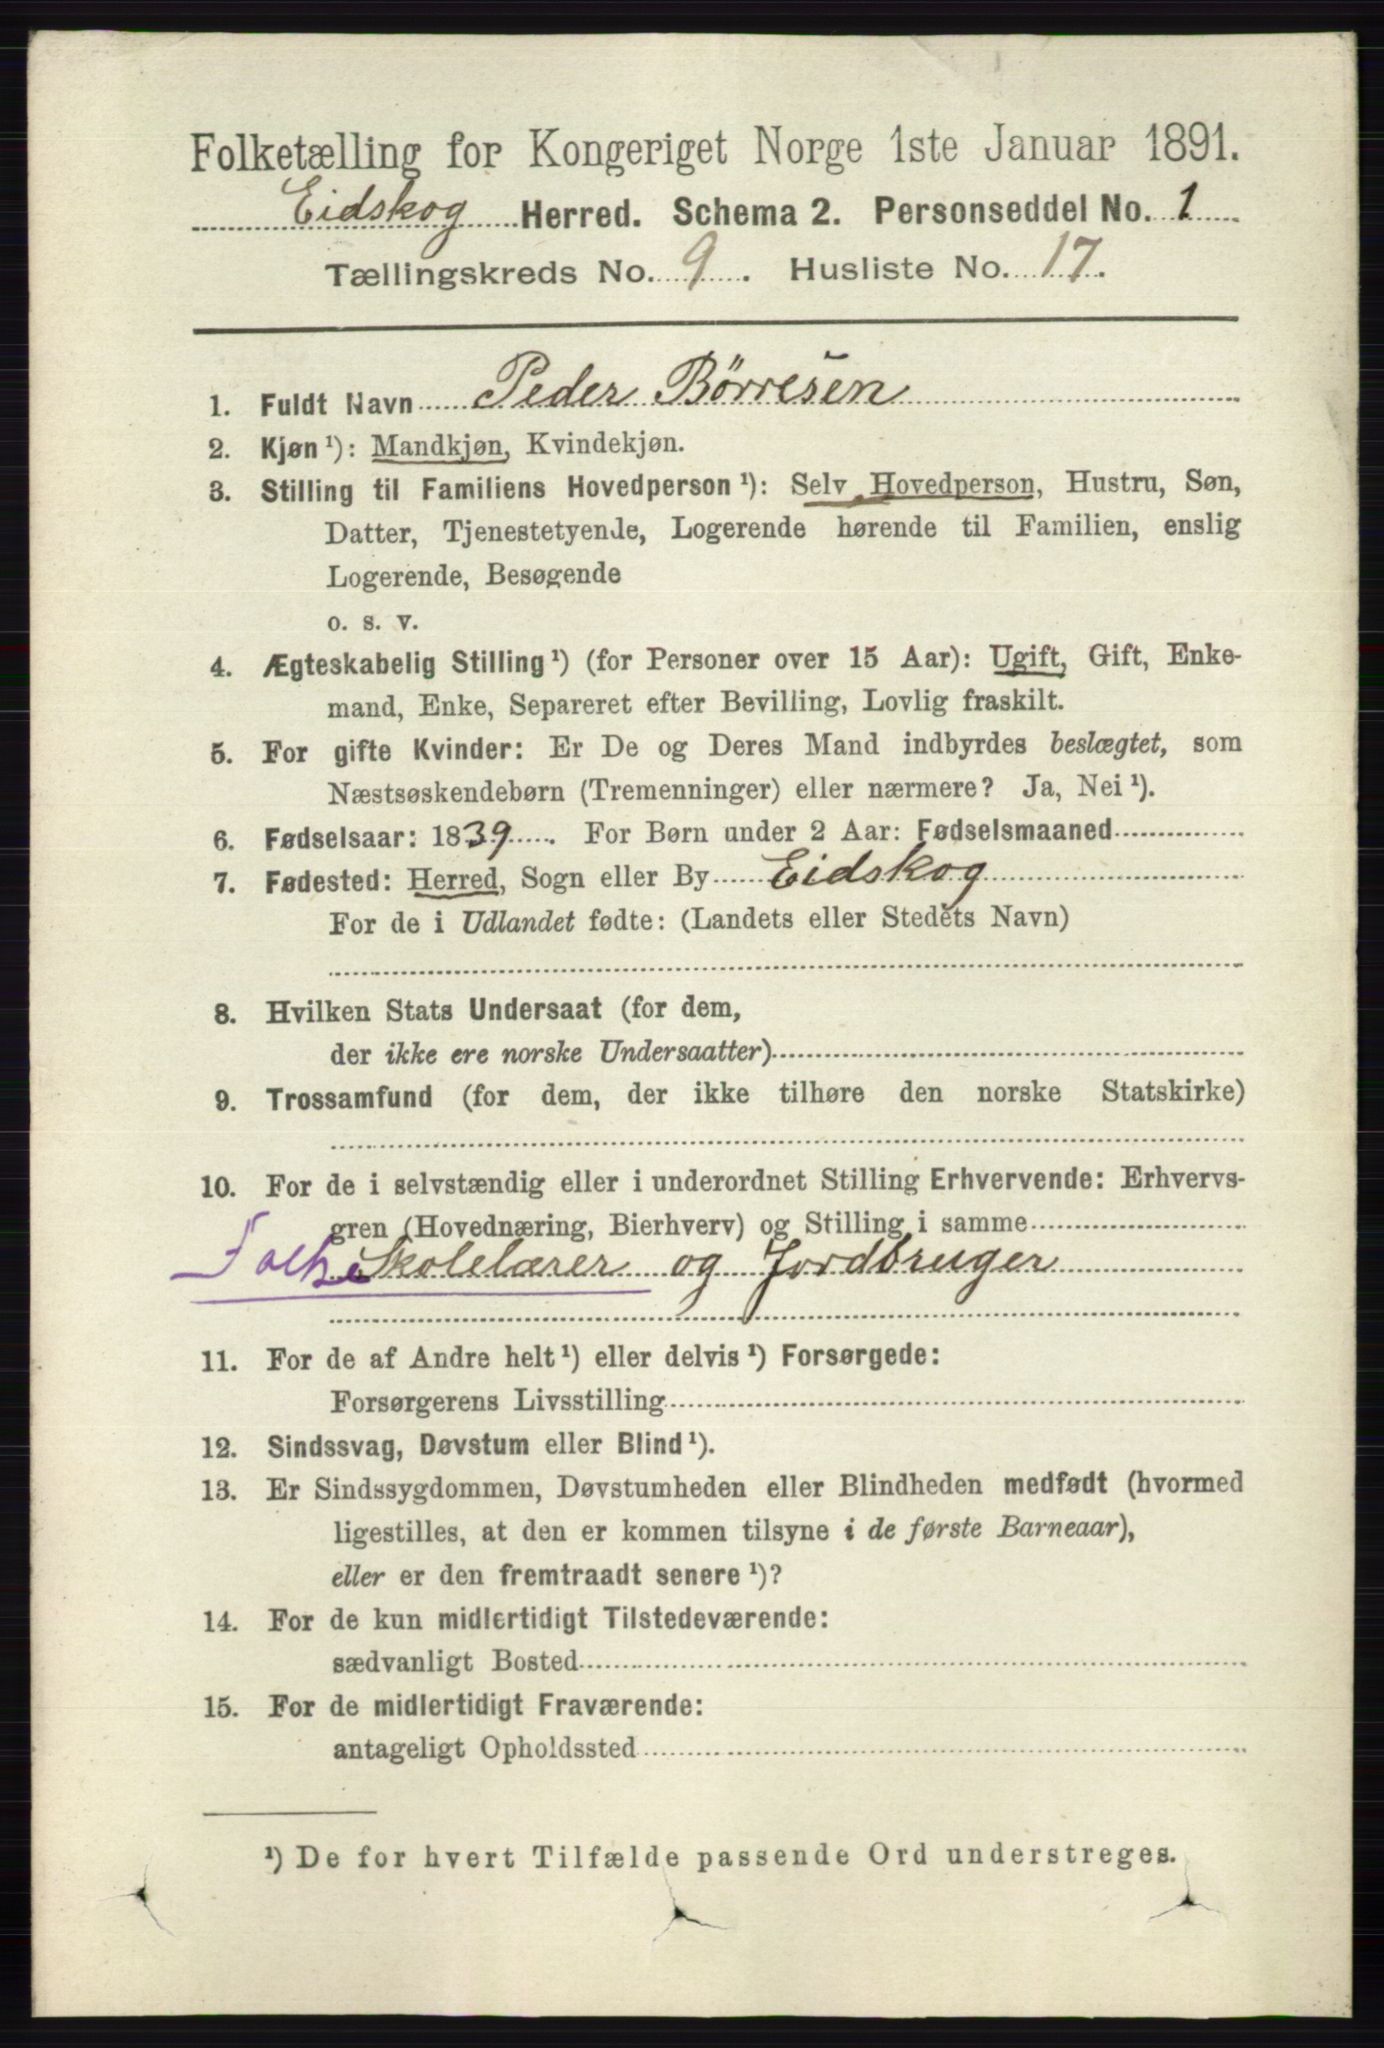 Folketælling for Kongeriget Norge 1ste Januar 1891.
Eidskog Herred. Schema 2. Personseddel No. 1
Tællingskreds No. 9. Husliste No. 17.
1. Fuldt Navn Peder Börresen
2. Kjøn ¹): Mandkjøn, Kvindekjøn.
3. Stilling til Familiens Hovedperson ¹): Selv Hovedperson, Hustru, Søn,
Datter, Tjenestetyende, Logerende hørende til Familien, enslig
Logerende, Besøgende
o. s. v.
4. Ægteskabelig Stilling ¹) (for Personer over 15 Aar): Ugift, Gift, Enke-
mand, Enke, Separeret efter Bevilling, Lovlig fraskilt.
5. For gifte Kvinder: Er De og Deres Mand indbyrdes beslægtet, som
Næstsøskendebørn (Tremenninger) eller nærmere? Ja, Nei ¹).
6. Fødselsaar: 1839. For Børn under 2 Aar: Fødselsmaaned
7. Fødested: Herred, Sogn eller By Eidskog
For de i Udlandet fødte: (Landets eller Stedets Navn)
8. Hvilken Stats Undersaat (for dem,
der ikke ere norske Undersaatter)
9. Trossamfund (for dem, der ikke tilhøre den norske Statskirke)
10. For de i selvstændig eller i underordnet Stilling Erhvervende: Erhvervs-
gren (Hovednæring, Bierhverv) og Stilling i samme
Folke Skolelærer og Jordbruger
11. For de af Andre helt ¹) eller delvis ¹) Forsørgede:
Forsørgerens Livsstilling
12. Sindssvag, Døvstum eller Blind ¹).
13. Er Sindssygdommen, Døvstumheden eller Blindheden medfødt (hvormed
ligestilles, at den er kommen tilsyne i de første Barneaar),
eller er den fremtraadt senere ¹)?
14. For de kun midlertidigt Tilstedeværende:
sædvanligt Bosted
15. For de midlertidigt Fraværende:
antageligt Opholdssted
¹) De for hvert Tilfælde passende Ord understreges.